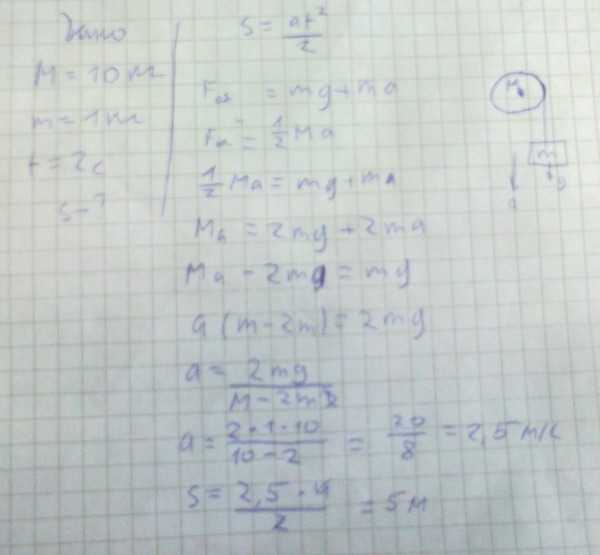 Дано
M = 10 кг
m = 1 кг
t = 2с
S - ?
S = at²/2
= mg + ma
= 1/2 Ma
1/2 Ma = mg + ma
Ma = 2mg + 2ma
Ma - 2mg = mg
a (m - 2m) = 2mg
a = 2mg / M - 2m
a = 2 * 1 * 10 / 10 - 2 = 20/8 = 2,5 м/с
S = 2,5 * 4 / 2 = 5 м
M
m